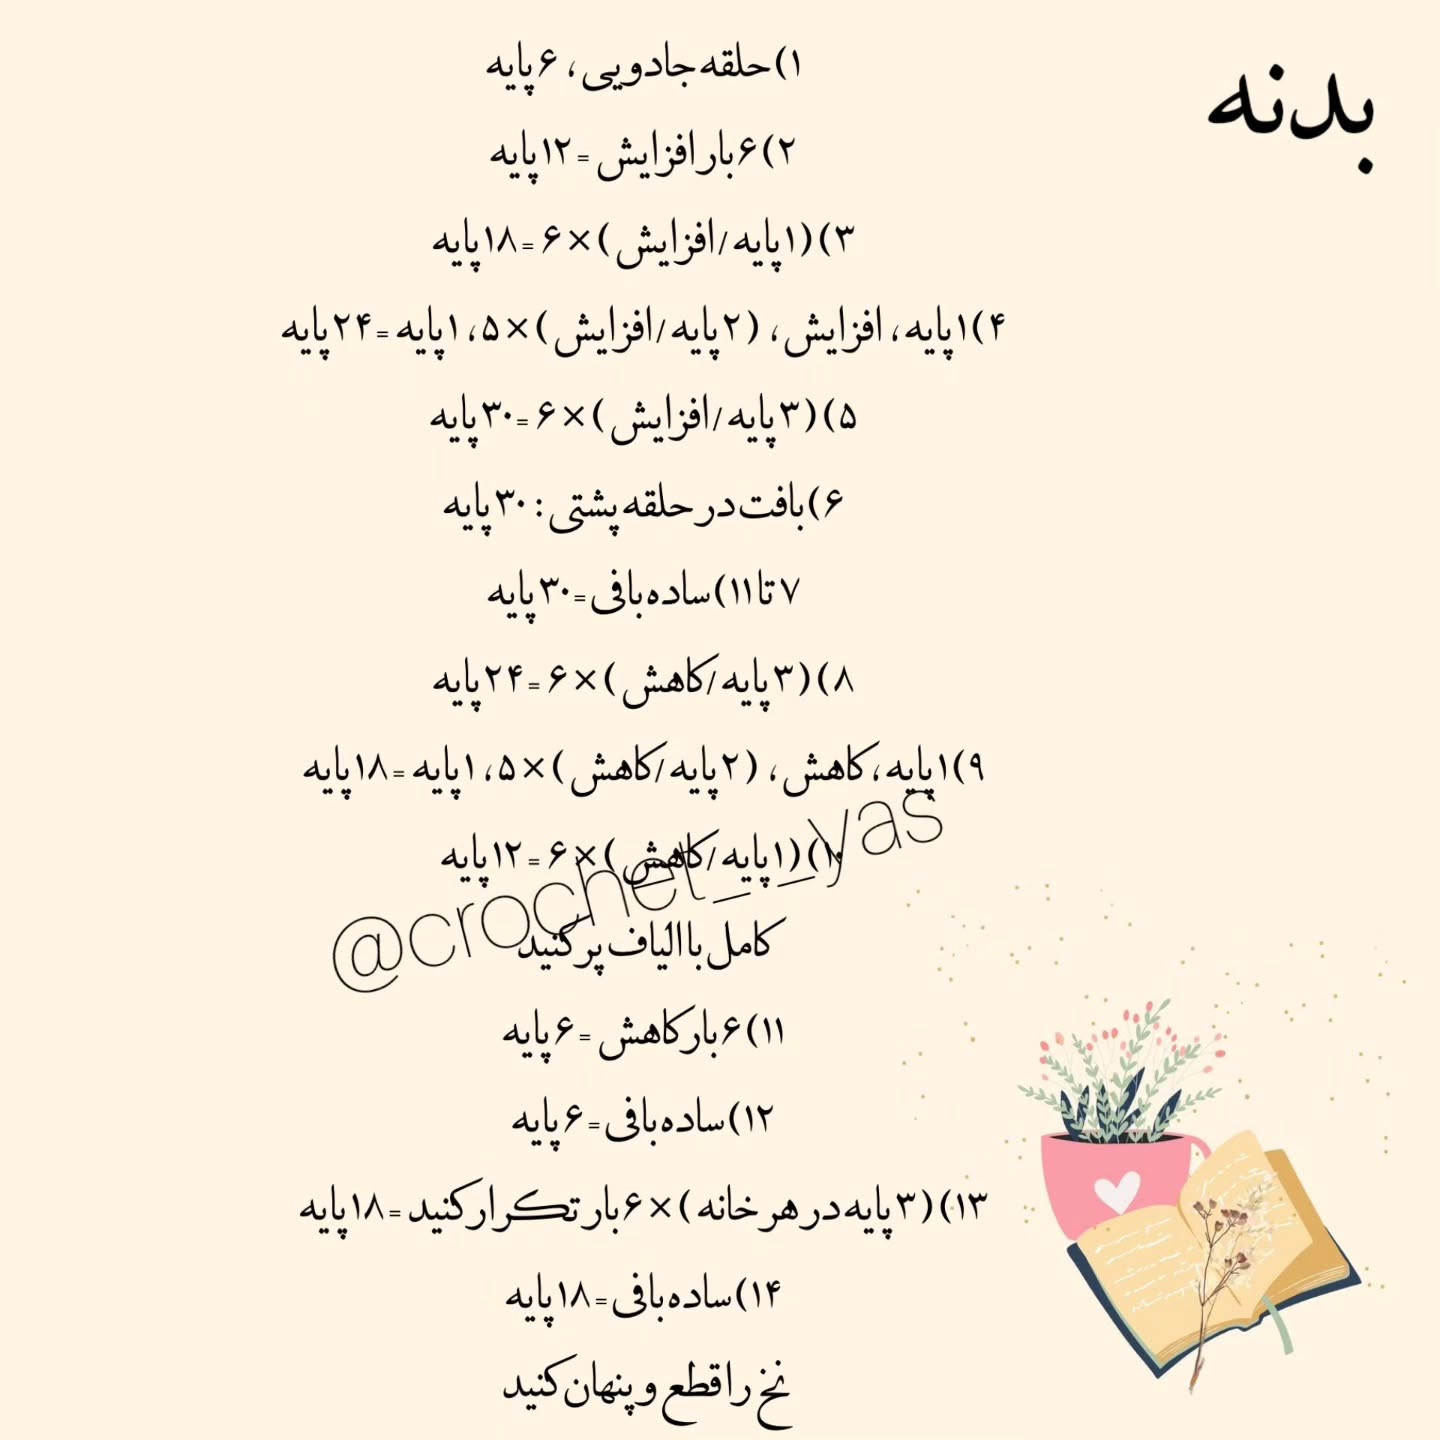 بدنه
۱)حلقه جادویی، ۶پایه
۲)۶بار افزایش =۱۲پایه
۳)(۱پایه/افزایش)×۶=۱۸پایه
۴)۱پایه، افزایش، (۲پایه/افزایش)×۵، ۱پایه =۲۴پایه
۵)(۳پایه/افزایش)×۶=۳۰پایه
۶)بافت در حلقه پشتی: ۳۰پایه
۷تا۱۱)ساده بافی=۳۰پایه
۸)(۳پایه/کاهش)×۶=۲۴پایه
۹)۱پایه،کاهش، (۲پایه/کاهش)×۵، ۱پایه =۱۸پایه
۱۰)(۱پایه/کاهش)×۶=۱۲پایه
@crochet__yas
کامل با الیاف پر کنید
۱۱)۶بار کاهش =۶پایه
۱۲)ساده بافی=۶پایه
۱۳)(۳پایه در هر خانه)×۶بار تکرار کنید=۱۸پایه
۱۴)ساده بافی=۱۸پایه
نخ را قطع و پنهان کنید